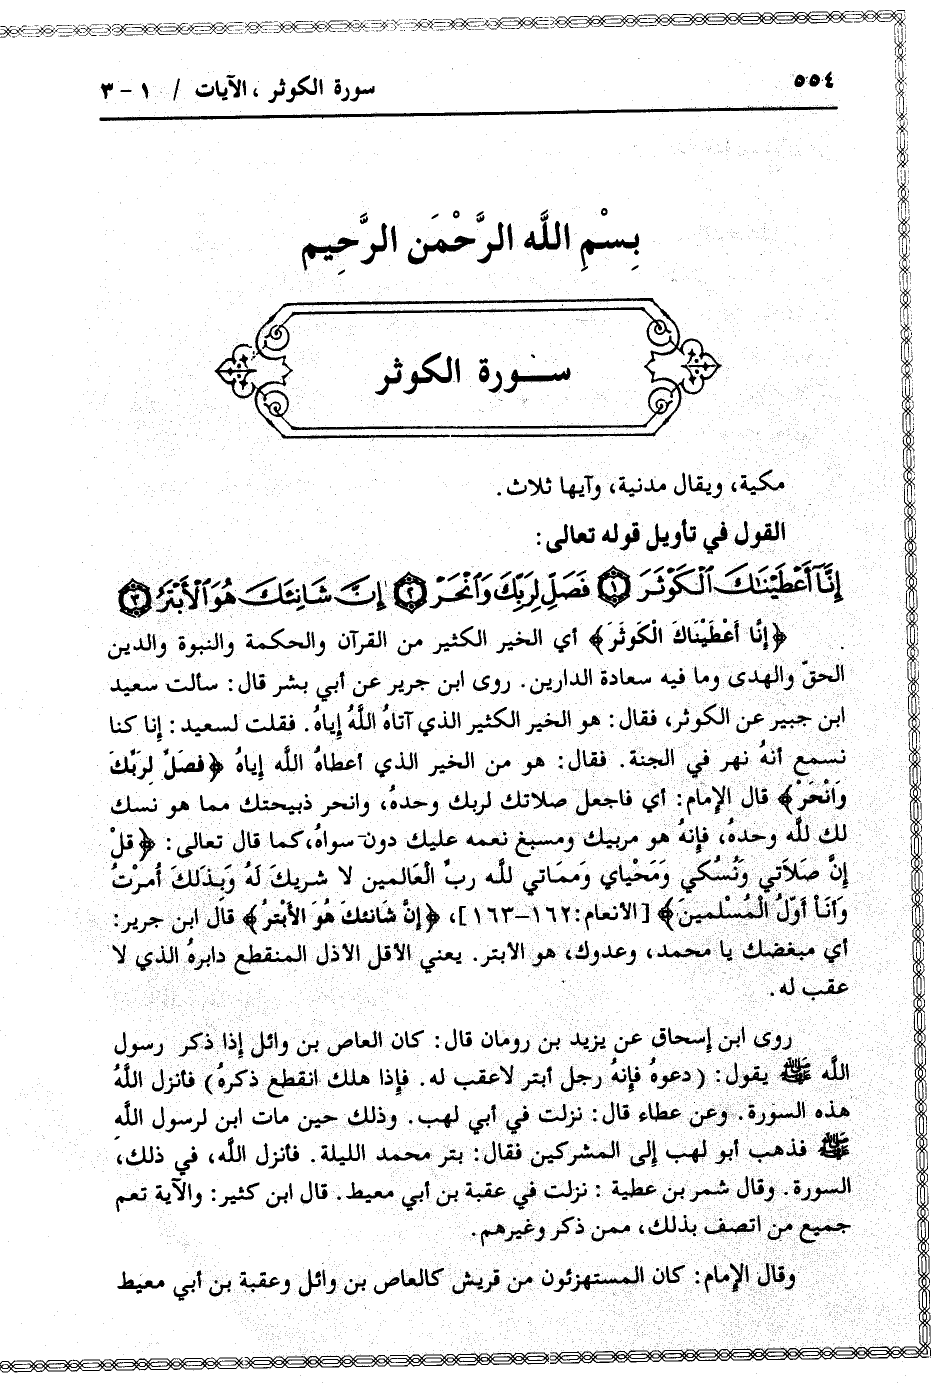 ٥٥٤
سورة الكوثر ، الآيات / ١ - ٣
بِسْمِ اللَّه الرَّحْمَن الرَّحِيم
ســورة الكوثر
مكية، ويقال مدنية، وآيها ثلاث.
القول في تأويل قوله تعالى:
إِنَّآ أَعْطَيْنَٰكَ ٱلْكَوْثَرَ ١ فَصَلِّ لِرَبِّكَ وَٱنْحَرْ ٢ إِنَّ شَانِئَكَ هُوَ ٱلْأَبْتَرُ ٣
﴿إِنَّا أَعْطَيْنَاكَ الْكَوثَرَ﴾ أي الخير الكثير من القرآن والحكمة والنبوة والدين
الحقّ والهدى وما فيه سعادة الدارين. روى ابن جرير عن أبي بشر قال: سألت سعيد
ابن جبير عن الكوثر، فقال: هو الخير الكثير الذي آتاهُ اللَّهُ إياهُ. فقلت لسعيد: إنا كنا
نسمع أنهُ نهر في الجنة. فقال: هو من الخير الذي أعطاهُ اللَّه إياهُ ﴿فَصَلِّ لِرَبِّكَ
وَانْحَرْ﴾ قال الإمام: أي فاجعل صلاتك لربك وحدهُ، وانحر ذبيحتك مما هو نسك
لك للَّه وحدهُ، فإنهُ هو مربيك ومسبغ نعمه عليك دون سواهُ،كما قال تعالى: ﴿قلْ
إِنَّ صَلاَتي وَنُسُكي وَمَحْياي وَمَمَاتي للَّه ربِّ الْعَالمين لا شريكَ لَهُ وَبِذَلكَ أُمرْتُ
وَأَنَا أَوَّلُ الْمُسْلمينَ﴾ [الأنعام:١٦٢-١٦٣]، ﴿إِنَّ شَانئكَ هُوَ الأبْترُ﴾ قال ابن جرير:
أي مبغضك يا محمد، وعدوك، هو الأبتر. يعني الأقل الأذل المنقطع دابرهُ الذي لا
عقب له.
روى ابن إسحاق عن يزيد بن رومان قال: كان العاص بن وائل إذا ذكر رسول
اللَّه ﷺ يقول: (دعوهُ فإنهُ رجل أبتر لاعقب له. فإذا هلك انقطع ذكرهُ) فأنزل اللَّهُ
هذه السورة. وعن عطاء قال: نزلت في أبي لهب. وذلك حين مات ابن لرسول اللَّهِ
ﷺ فذهب أبو لهب إلى المشركين فقال: بتر محمد الليلة. فأنزل اللَّه، في ذلك،
السورة. وقال شمر بن عطية : نزلت في عقبة بن أبي معيط. قال ابن كثير: والآية تعم
جميع من اتصف بذلك، ممن ذكر وغيرهم.
وقال الإمام: كان المستهزئون من قريش كالعاص بن وائل وعقبة بن أبي معيط